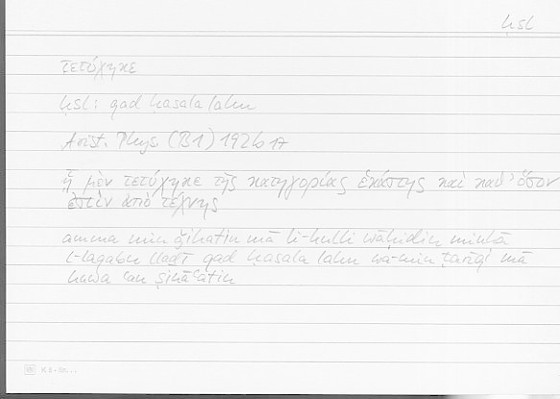 ḥṣl
τετύχηκε
ḥṣl: qad ḥaṣala lahu
Arist. Phys (B1) 192b17
ᾗ μὲν τετύχηκε τῆς κατηγορίας ἑκάστης καὶ καθ' ὅσον
ἐστὶν ἀπὸ τέχνης
amma min ǧihatin mā li-kulli wāḥidin minhā
l-laqabu lladī qad ḥaṣala lahu wa-min ṭarīqi mā
huwa ʿan ṣināʿatin